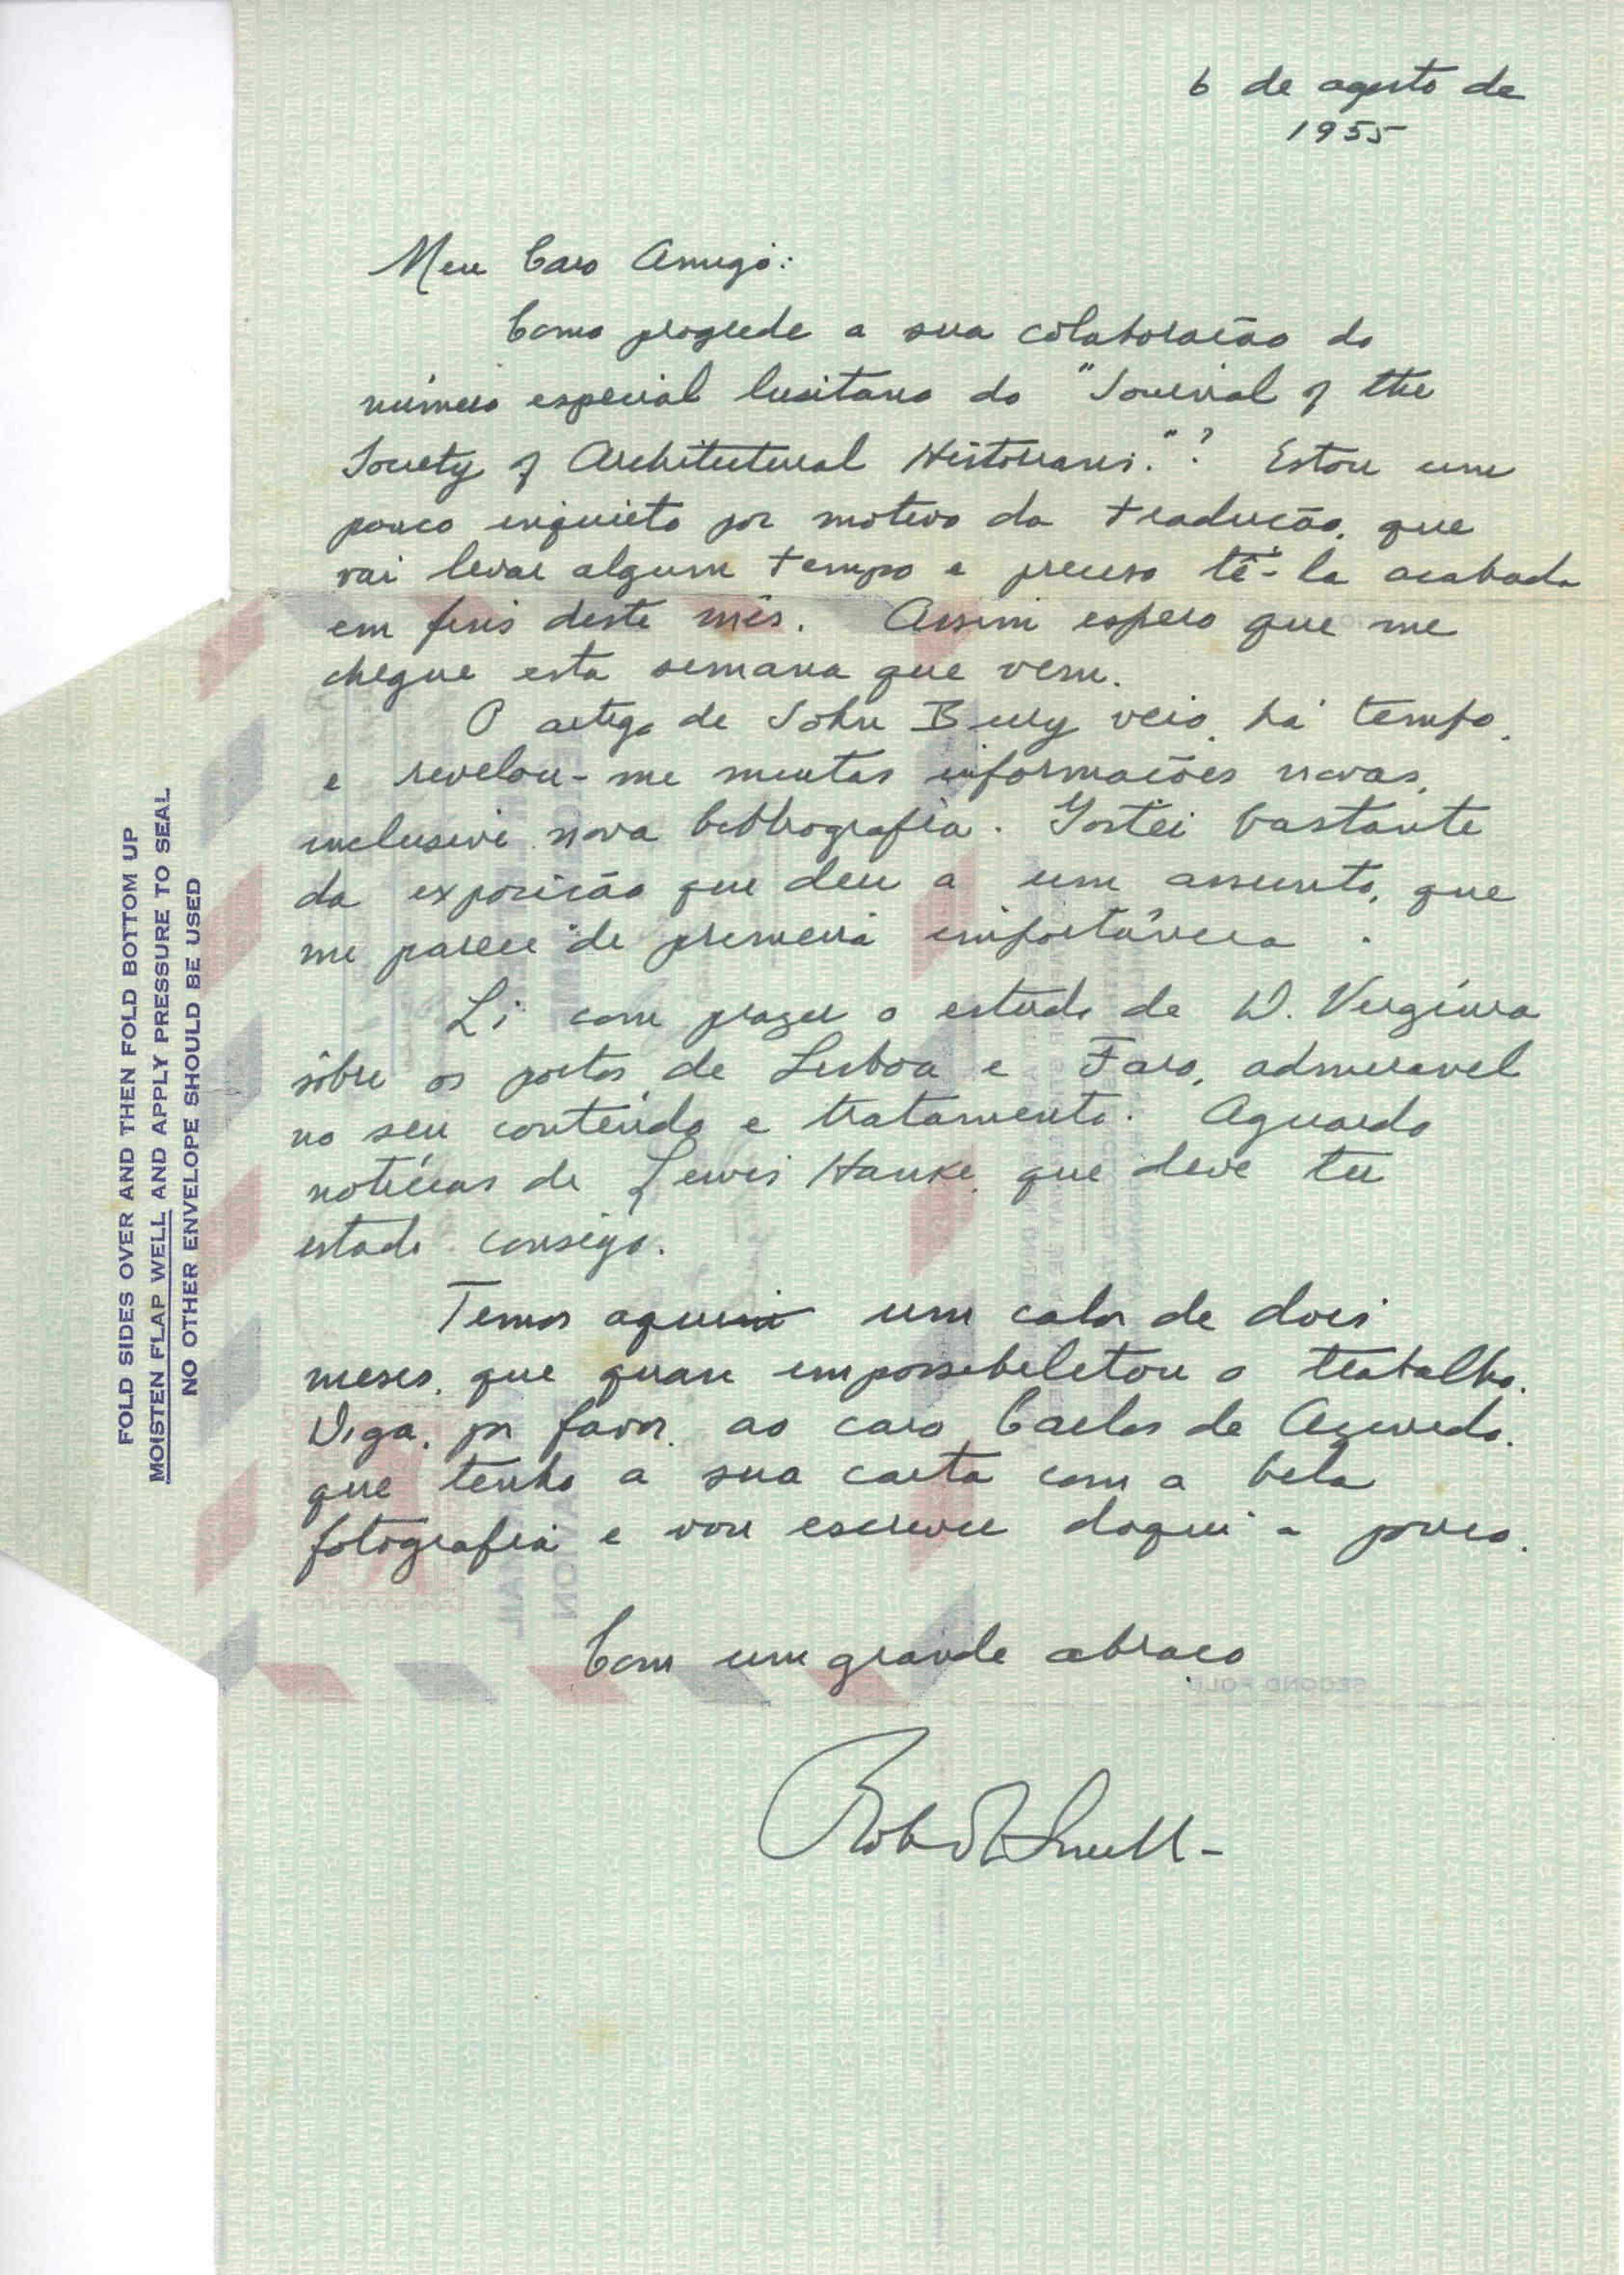 6 de agosto de
1955
Meu Caro Amigo:
Como progrede a sua colaboração do
número especial lusitano do "Journal of the
Society of Architectural Historians."? Estou um
pouco inquieto por motivo da tradução, que
vai levar algum tempo e preciso tê-la acabada
em fins deste mês. Assim espero que me
chegue esta semana que vem.
O artigo de John Bury veio, há tempo,
e revelou-me muitas informações novas,
inclusive nova bibliografia. Gostei bastante
da exposição que deu a um assunto, que
me parece de primeira importância.
Li com prazer o estudo de D. Virgínia
sôbre os portos de Lisboa e Faro, admiravel
no seu conteúdo e tratamento. Aguardo
notícias de Lewis Hanke, que deve ter
estado consigo.
Temos aqui um calor de dois
meses, que quase impossibilitou o trabalho.
Diga, por favor, ao caro Carlos de Azevedo,
que tenho a sua carta com a bela
fotografia e vou escrever daqui a pouco.
Com um grande abraço
Robert Smith-
FOLD SIDES OVER AND THEN FOLD BOTTOM UP
MOISTEN FLAP WELL AND APPLY PRESSURE TO SEAL
NO OTHER ENVELOPE SHOULD BE USED
SECOND FOLD